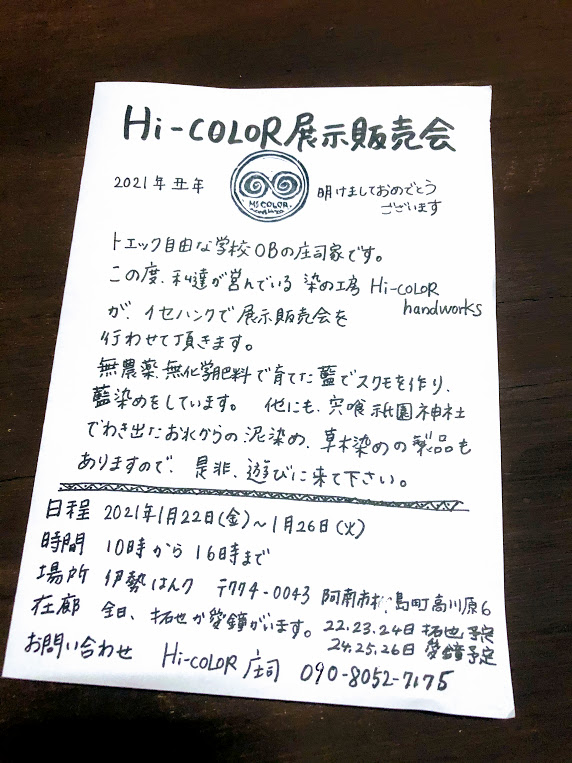 Hi-COLOR展示販売会
2021年 丑年
Hi COLOR
明けましておめでとう
ございます
トエック自由な学校OBの庄司家です。
この度、私達が営んでいる 染の工房 Hi-COLOR
handworks
が、イセハンクで展示販売会を
行わせて頂きます。
無農薬、無化学肥料で育てた藍でスクモを作り、
藍染めをしています。 他にも、宍喰祇園神社
でわき出たお水からの泥染め、草木染めの製品も
ありますので、是非、遊びに来て下さい。
日程 2021年1月22日(金)～1月26日(火)
時間 10時から16時まで
場所 伊勢はんク 〒774-0043 阿南市 島町高川原6
在廊 全日、拓也か愛鐘がいます。 22.23.24日 拓也予定
24.25.26日 愛鐘予定
お問い合わせ Hi-COLOR 庄司 090-8052-7175